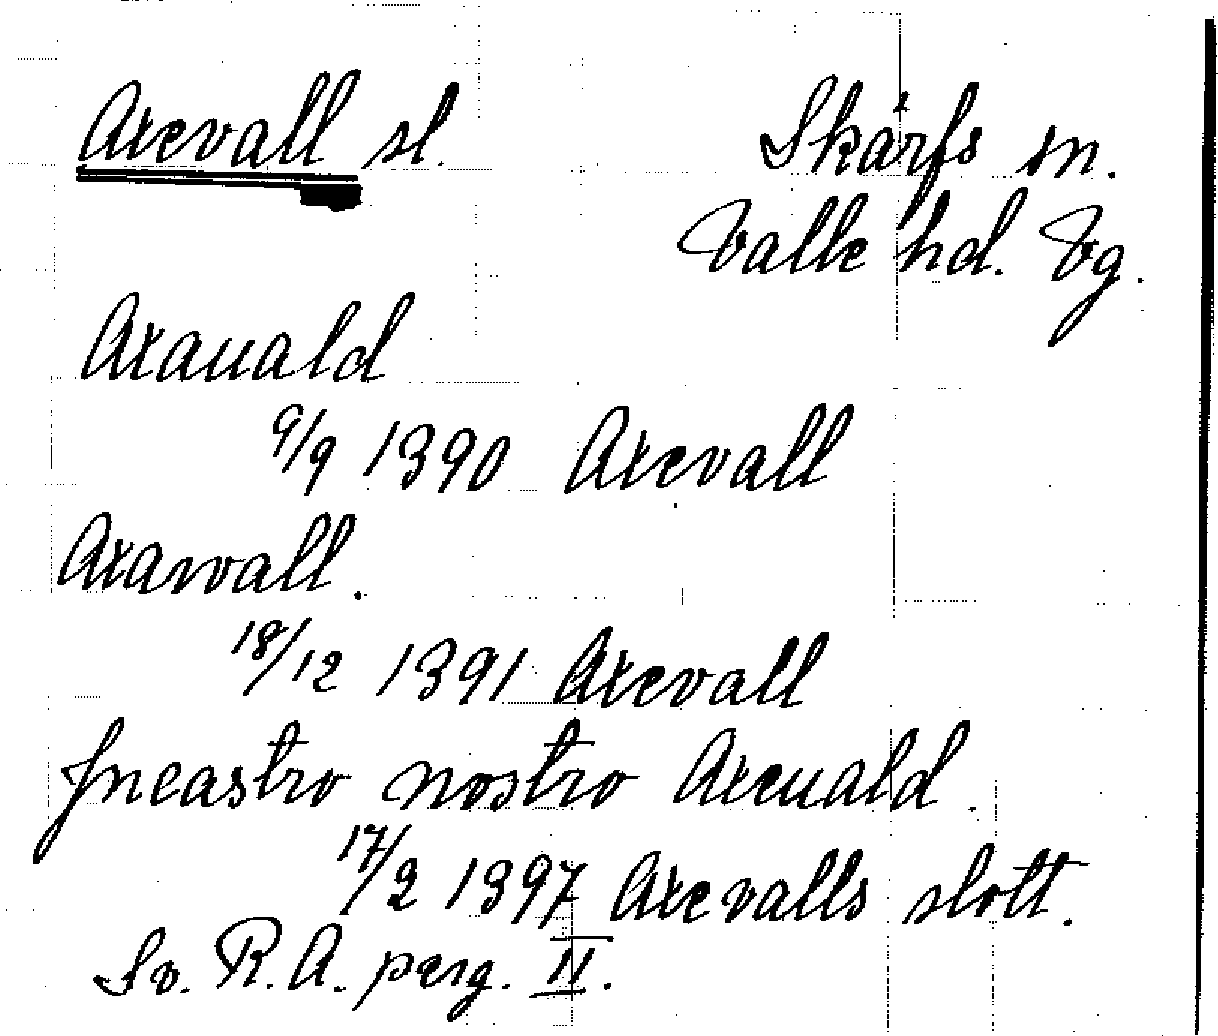 Axevall sl. Skärfs sn.
Valle hd. Vg.
Axauald
9/9 1390 Axevall
Axawall.
18/12 1391 Axevall
Jncastro nostro Axeuald.
17/2 1397 Axevalls slott.
Sv. R.A. perg. II.